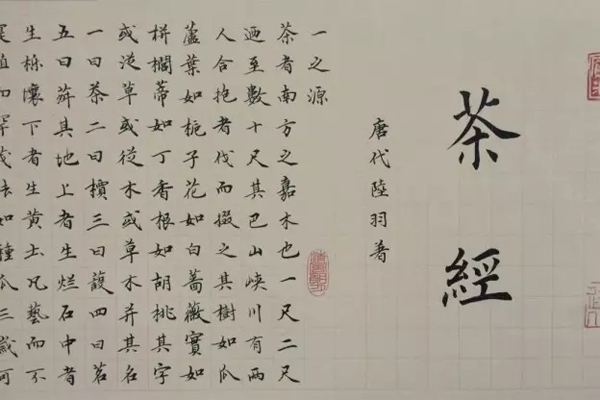 茶經
唐代陸羽著
一之源
茶者南方之嘉木也一尺二尺
迺至數十尺其巴山峽川有两
人合抱者伐而掇之其樹如瓜
蘆葉如栀子花如白薔薇實如
栟櫚蒂如丁香根如胡桃其字
或從草或從木或草木并其名
一曰茶二曰檟三曰蔎四曰茗
五曰荈其地上者生烂石中者
生栎壤下者生黄土凡藝而不
植而罕茂法如種瓜三歲可